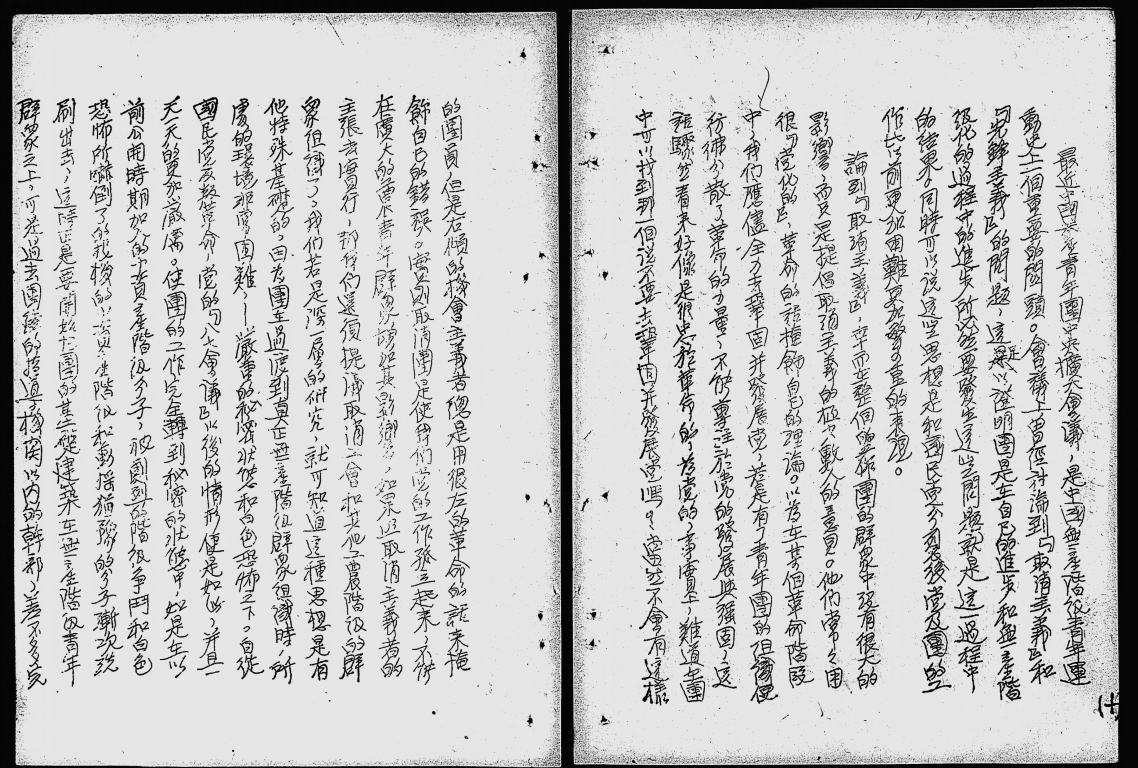 最近中國共產青年團中央擴大會議，是中國無產階級青年運
動史上一個重要的關頭。會議上曾經討論到「取消主義」和
「先鋒主義」的問題，這是以證明團是在自己的進步和無產階
級化的過程中的進步所必然要發生這些問題就是這一過程中
的結果。同時可以說這些思想是和國民黨分裂後黨及團的工
作比以前更加困難更加嚴重的表現。
論到「取消主義」，幸而在整個的團的群眾中沒有很大的
影響，而只是提倡取消主義的極少數的意見。他們常常用
很「黨化的」，革命的話來掩飾自己的理論。以為在某個革命階段
中，我們應儘全力去鞏固并發展黨，若是有了青年團的組織便
彷彿分散了革命的力量，不能專注於黨的發展與強固，這
話驟然看來好像是很忠於革命的，為黨的，事實上，難道在團
中可以找到一個說不要去鞏固并發展黨嗎？當然不會有這樣
的團員，但是右傾的機會主義者總是用很左的革命的話來掩
飾自己的錯誤。實則取消團是使我們黨的工作孤立起來，不能
在廣大的勞苦青年群眾擴張其影響，如果照取消主義者的
主張去實行，那我們還須提議取消工會和其他工農階級的群
眾組織了，我們若是深一層的研究，就可知道這種思想是有
他特殊基礎的，因為團在過渡到真正無產階級群眾組織時，所
處的環境非常困難，—嚴重的秘密狀態和白色恐怖之下。自從
國民黨反叛革命，黨的「八七會議」以後的情形便是如此，并且一
天天的更加嚴厲。使團的工作完全轉到秘密的狀態中，如是在以
前公開時期加入的小資產階級分子，被劇烈的階級爭鬥和白色
恐怖所嚇倒了的投機的小資產階級和動搖猶豫的分子漸次洗
刷出去，這時正是要開始把團的基礎建築在無產階級青年
群眾之上，可是過去團體的指導機關以內的幹部，差不多完